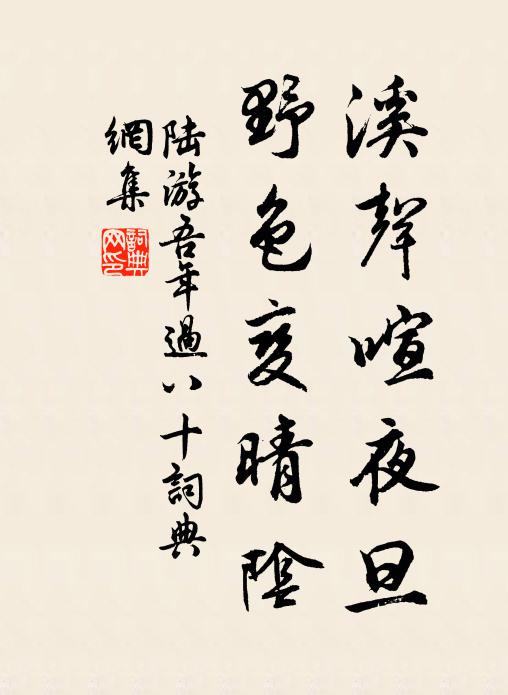 溪聲喧夜旦
野色變晴陰
陸游吾年過八十詞典
網集
詞典網印